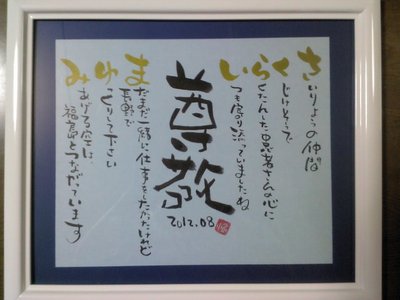 さいりょうの仲間
くじけそうで
らくたんした患者さんの心に
いつも寄り添っていましたね
尊敬
2012.08
まだまだ一緒に仕事をしたかったけれど
長野で
ゆっくりして下さい
みあげる空は、
福島とつながっています